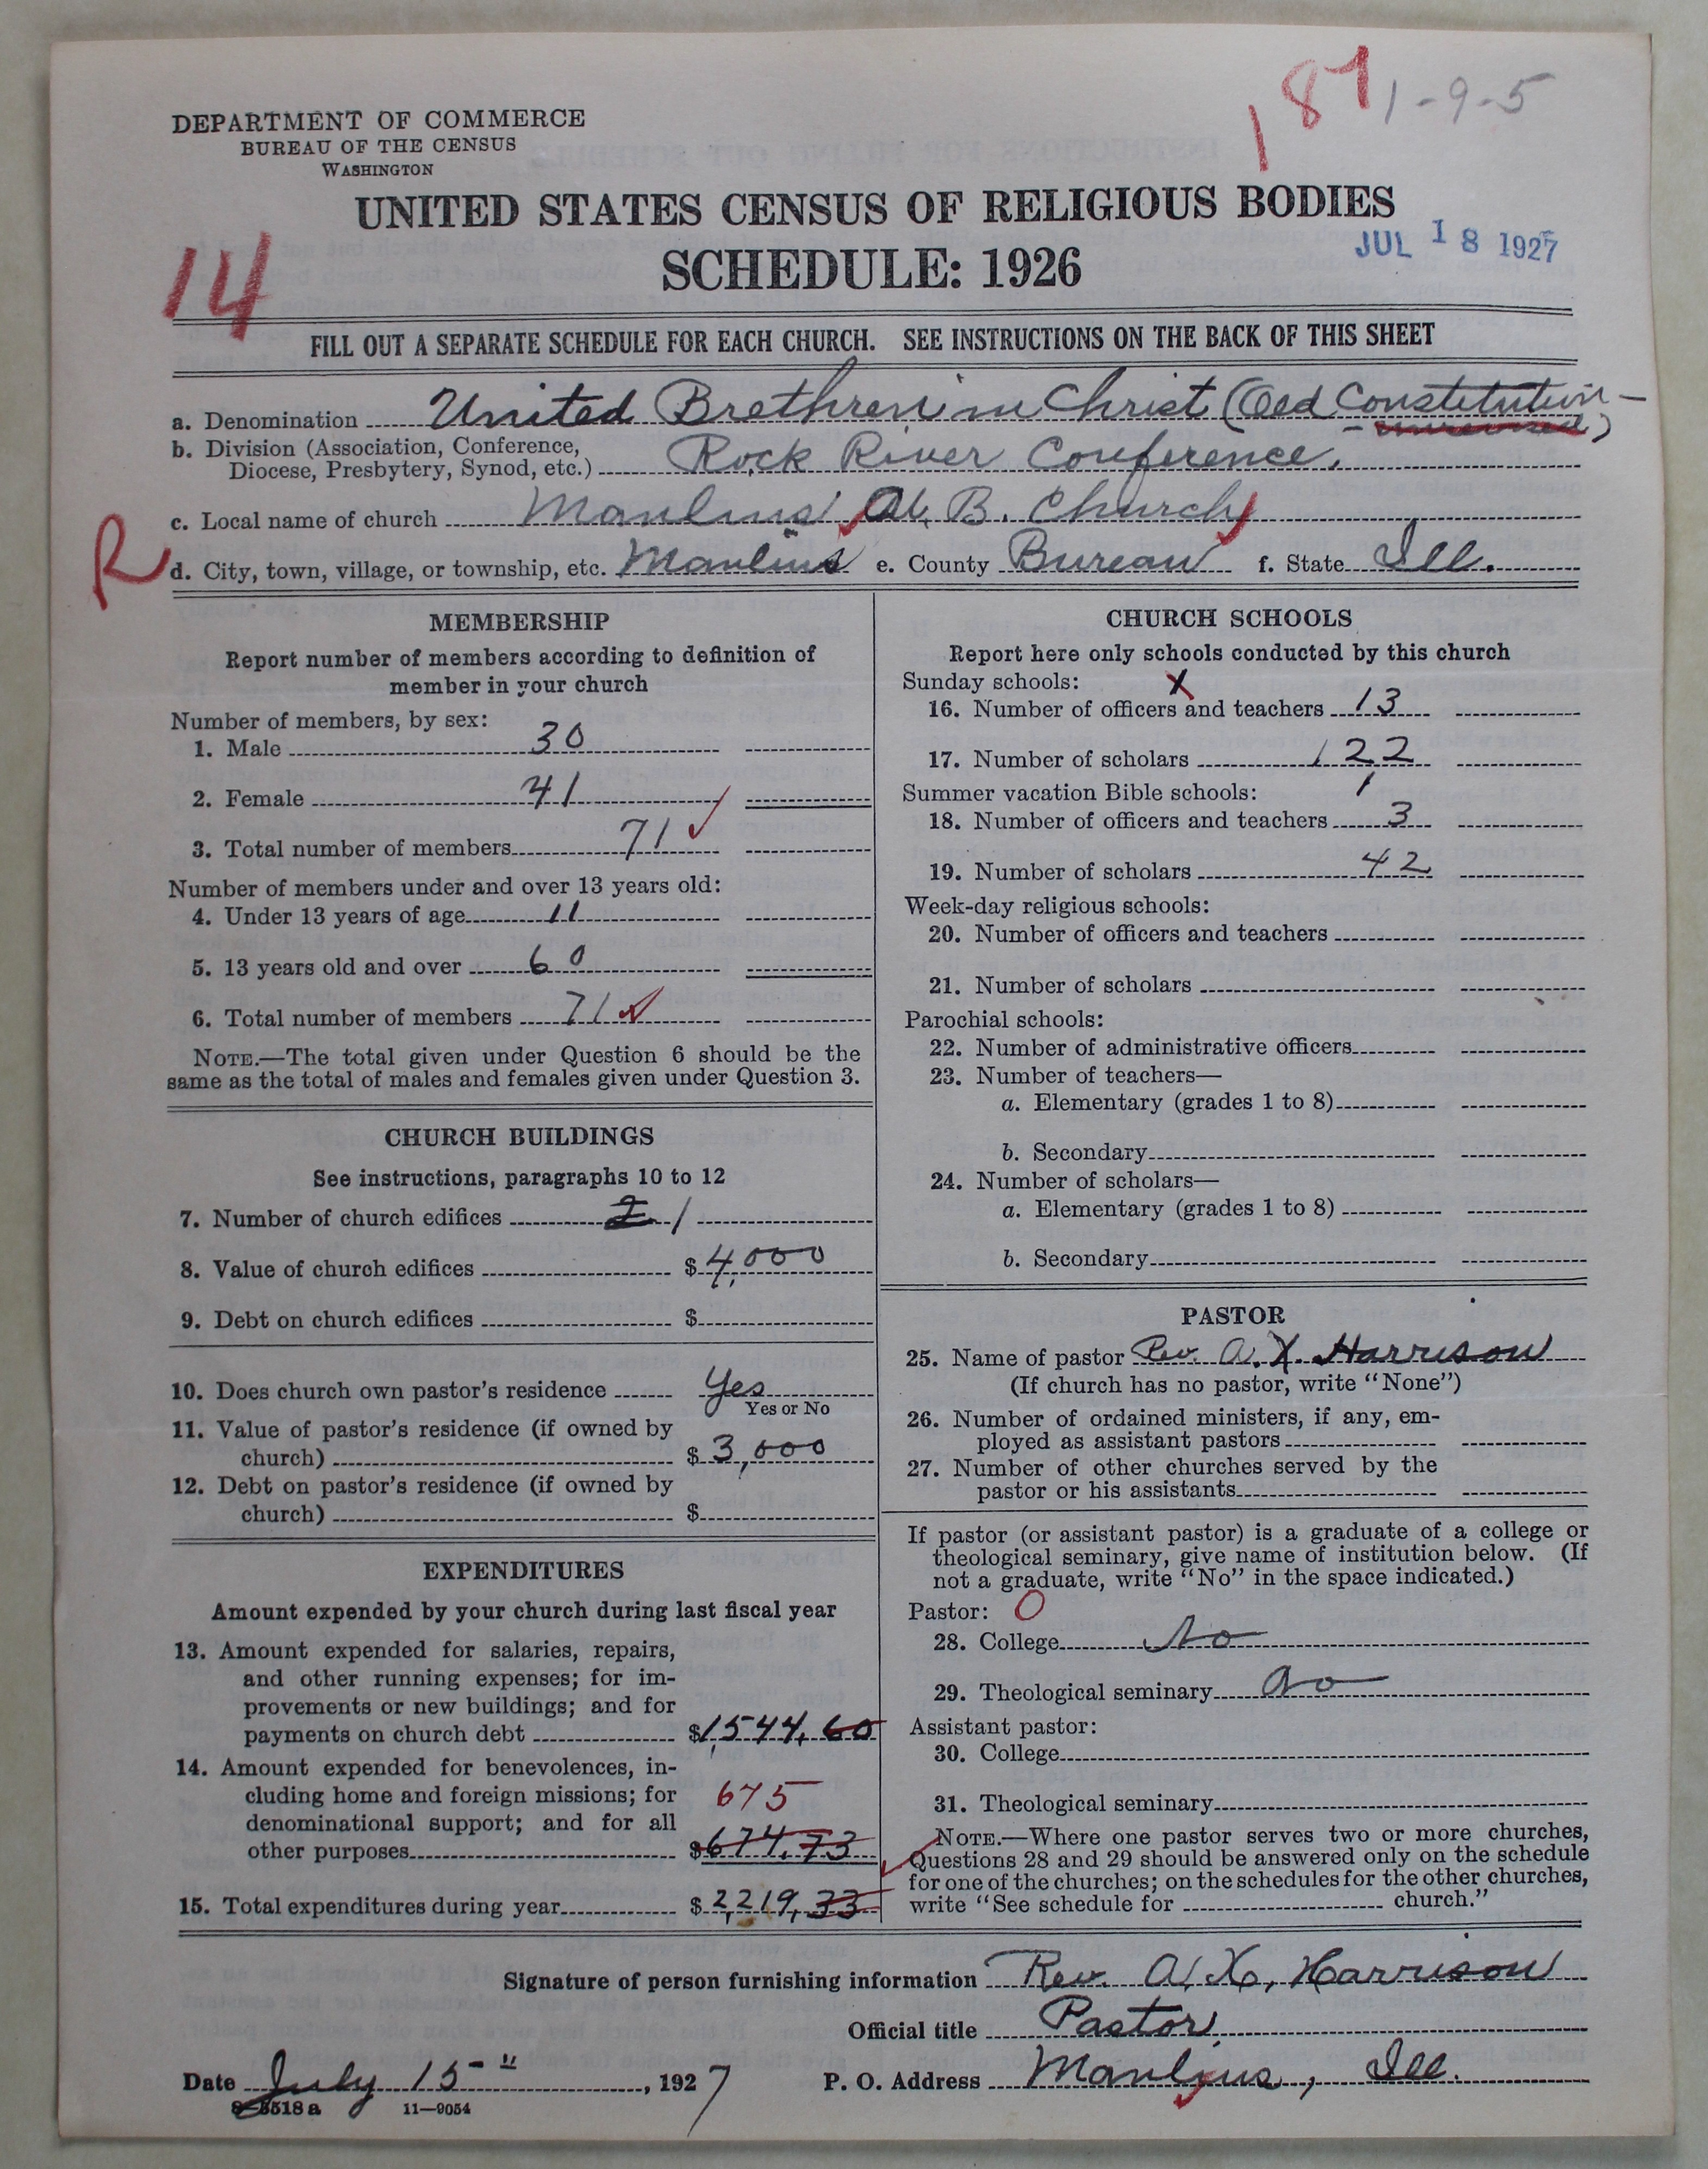 187 1-9-5
DEPARTMENT OF COMMERCE
BUREAU OF THE CENSUS
WASHINGTON
UNITED STATES CENSUS OF RELIGIOUS BODIES
SCHEDULE: 1926
JUL 18 1927
14
FILL OUT A SEPARATE SCHEDULE FOR EACH CHURCH. SEE INSTRUCTIONS ON THE BACK OF THIS SHEET
a. Denomination United Brethren in Christ (Old Constitution-
b. Division (Association, Conference,
Diocese, Presbytery, Synod, etc.) Rock River Conference.
c. Local name of church Manlius U. B. Church
R
d. City, town, village, or township, etc. Manlius e. County Bureau f. State Ill.
MEMBERSHIP
Report number of members according to definition of
member in your church
Number of members, by sex:
1. Male 30
2. Female 41
3. Total number of members 71
Number of members under and over 13 years old:
4. Under 13 years of age 11
5. 13 years old and over 60
6. Total number of members 71
NOTE.—The total given under Question 6 should be the
same as the total of males and females given under Question 3.
CHURCH BUILDINGS
See instructions, paragraphs 10 to 12
7. Number of church edifices 2 1
8. Value of church edifices $4,000
9. Debt on church edifices $
10. Does church own pastor's residence Yes
Yes or No
11. Value of pastor's residence (if owned by
church) $3,000
12. Debt on pastor's residence (if owned by
church) $
EXPENDITURES
Amount expended by your church during last fiscal year
13. Amount expended for salaries, repairs,
and other running expenses; for im-
provements or new buildings; and for
payments on church debt $1,544.60
14. Amount expended for benevolences, in-
cluding home and foreign missions; for 675
denominational support; and for all
other purposes $674.73
15. Total expenditures during year $2,219.33
CHURCH SCHOOLS
Report here only schools conducted by this church
Sunday schools: X
16. Number of officers and teachers 13
17. Number of scholars 122
Summer vacation Bible schools: 1
18. Number of officers and teachers 3
19. Number of scholars 42
Week-day religious schools:
20. Number of officers and teachers
21. Number of scholars
Parochial schools:
22. Number of administrative officers
23. Number of teachers—
a. Elementary (grades 1 to 8)
b. Secondary
24. Number of scholars—
a. Elementary (grades 1 to 8)
b. Secondary
PASTOR
25. Name of pastor Rev. A. X. Harrison
(If church has no pastor, write "None")
26. Number of ordained ministers, if any, em-
ployed as assistant pastors
27. Number of other churches served by the
pastor or his assistants
If pastor (or assistant pastor) is a graduate of a college or
theological seminary, give name of institution below. (If
not a graduate, write "No" in the space indicated.)
Pastor: O
28. College No
29. Theological seminary No
Assistant pastor:
30. College
31. Theological seminary
NOTE.—Where one pastor serves two or more churches,
Questions 28 and 29 should be answered only on the schedule
for one of the churches; on the schedules for the other churches,
write "See schedule for church."
Signature of person furnishing information Rev. A. X. Harrison
Official title Pastor
Date July 15 - " , 1927 P. O. Address Manlius, Ill.
8-5518 a 11—9054